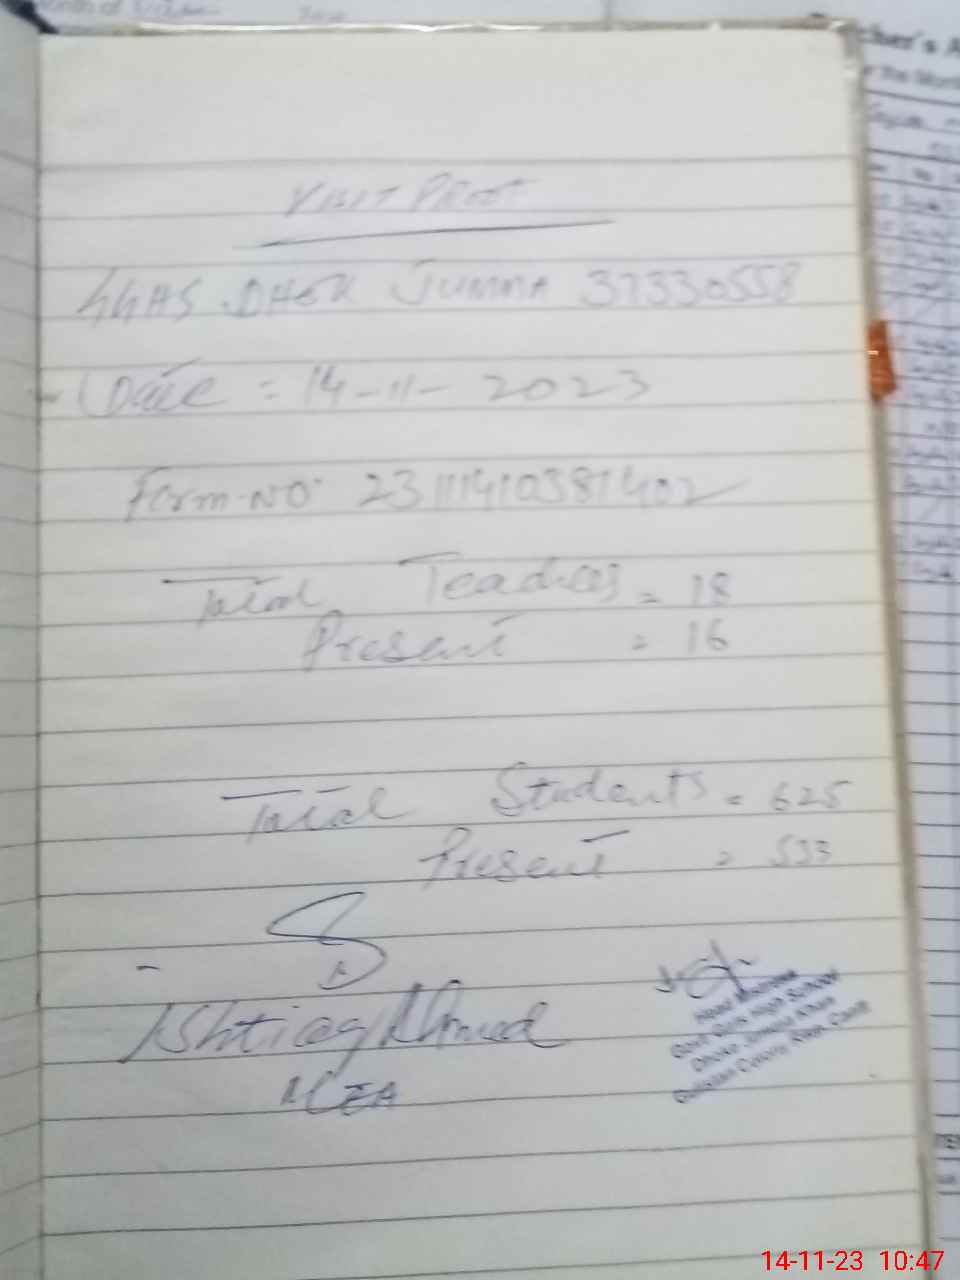 Visit Proof
GGHS DHOK JUMMA 37330558
Date = 14-11-2023
Form-NO 23111410381402
Total Teachers = 18
Present = 16
Total Students = 625
Present = 533
Ishtiaq Ahmed
MEA
Head Mistress
Govt. Girls High School
Dhoke Jumma Khan
Colony, Rwp. Cantt
cher's A
r the Mont
14-11-23 10:47